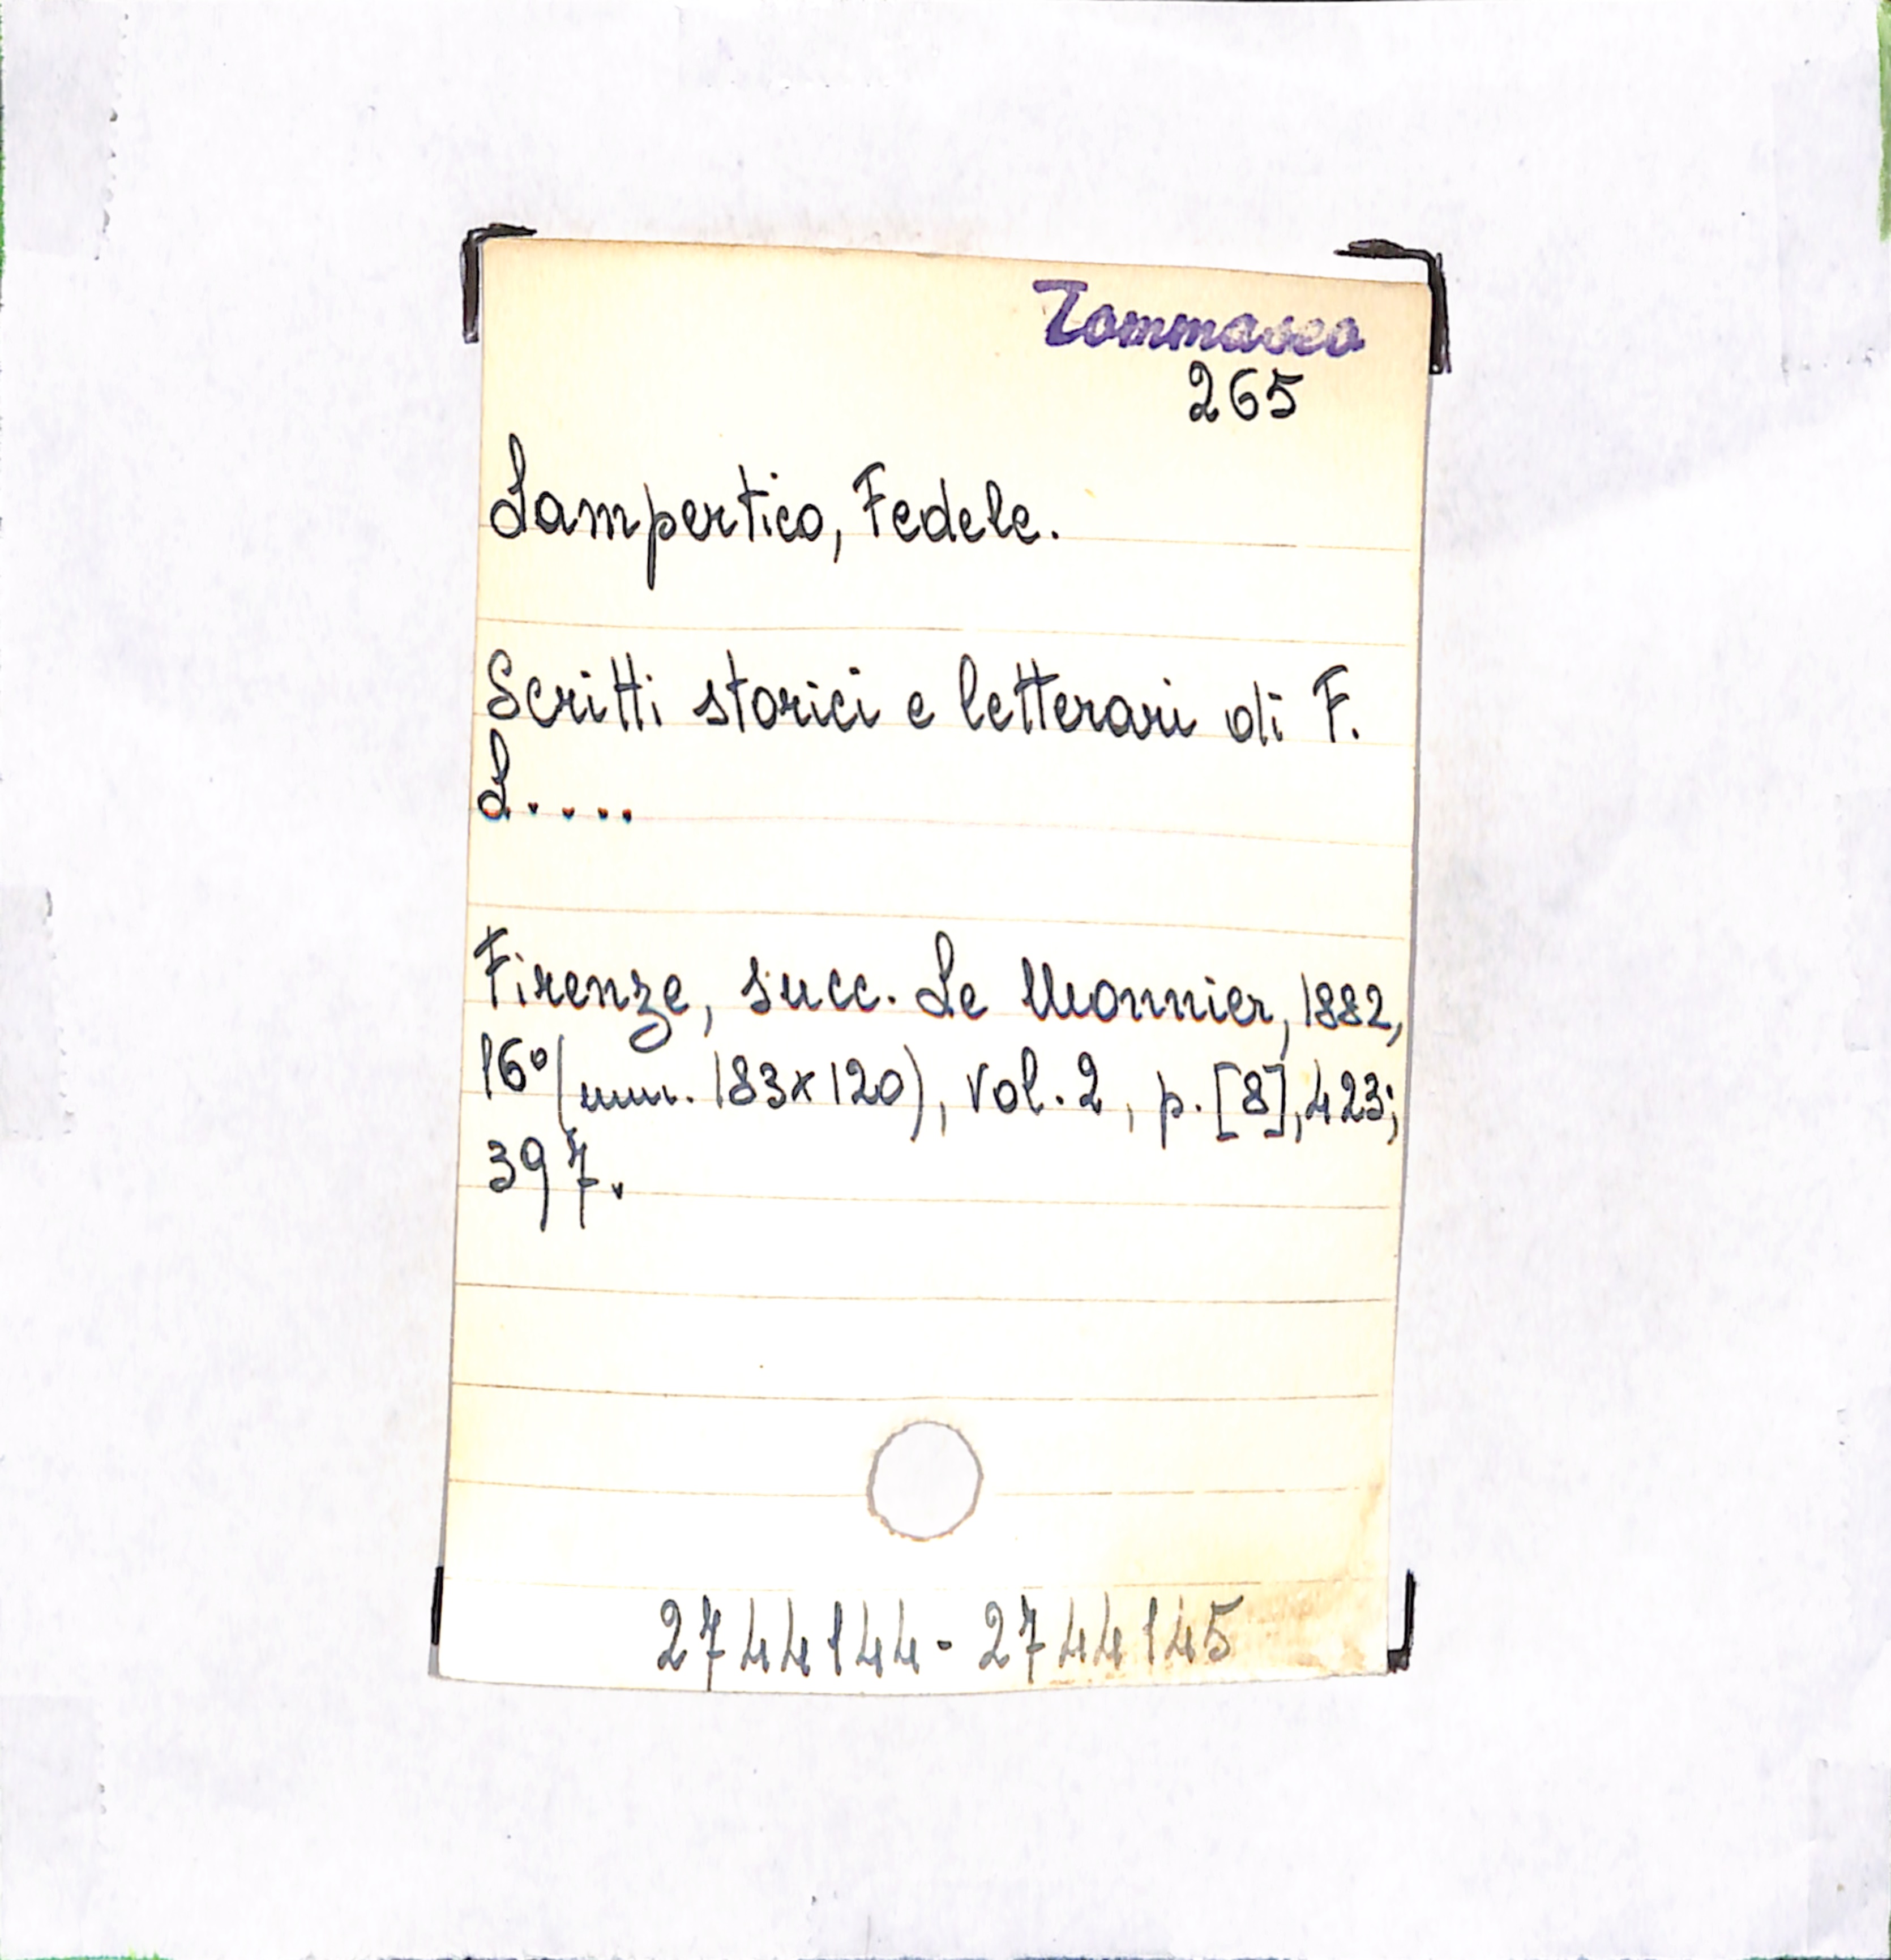 Tommaseo
265
Lampertico, Fedele.
Scritti storici e letterari di F.
L....
Firenze, succ. Le Monnier, 1882,
16º (mm. 183x120), vol. 2, p. [8], 423;
397.
2744144-2744145